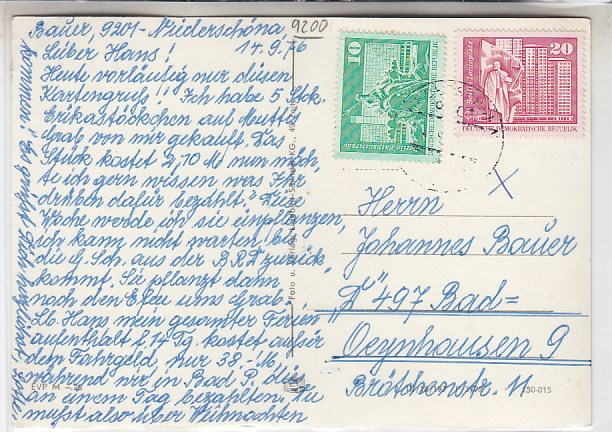 Bauer, 9201-Niederschöna,
14.9.76
Lieber Hans!
Heute vorläufig nur diesen
Kartengruß! Ich habe 5 Stk.
Erikastöckchen auf Muttis
Grab von mir gekauft. Das
Stück kostet 2,70 M nun möch-
te ich gern wissen was Ihr
drüben dafür bezahlt. Diese
Woche werde ich sie einpflanzen,
ich kann nicht warten, bis
die G. Sch. aus der B.R.D zurück
kommt. Sie pflanzt dann
noch den Efeu ums Grab.
Lb. Hans mein gesamter Ferien
aufenthalt f. 14 Tg. kostet außer
dem Fahrgeld nur 38,- M,
während wir in Bad P. dies
an einem Tag bezahlten. Du
mußt also über Weihnachten
kommen! Es grüßt Dich herzlichst,
9200
10
DEUTSCHE DEMOKRATISCHE REPUBLIK
20
DEUTSCHE DEMOKRATISCHE REPUBLIK
Herrn
Johannes Bauer
"D" 497 Bad=
Oeynhausen 9
Brüderstr. 11
EVP M
150-015